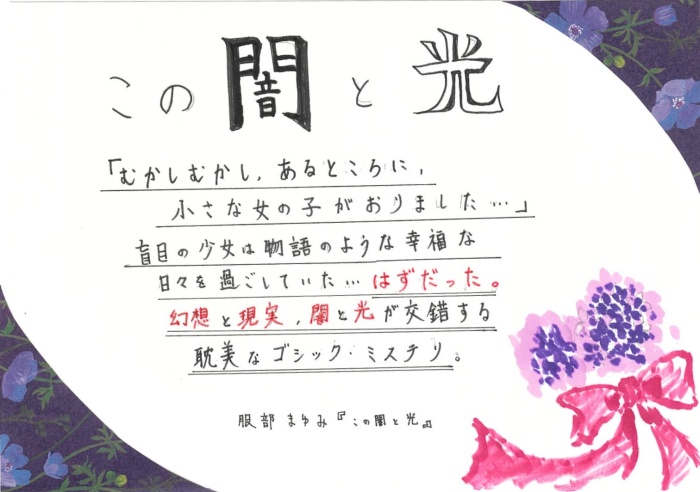 この闇と光
「むかしむかし、あるところに、
小さな女の子がおりました…」
盲目の少女は物語のような幸福な
日々を過ごしていた…はずだった。
幻想と現実、闇と光が交錯する
耽美なゴシック・ミステリ。
服部まゆみ『この闇と光』